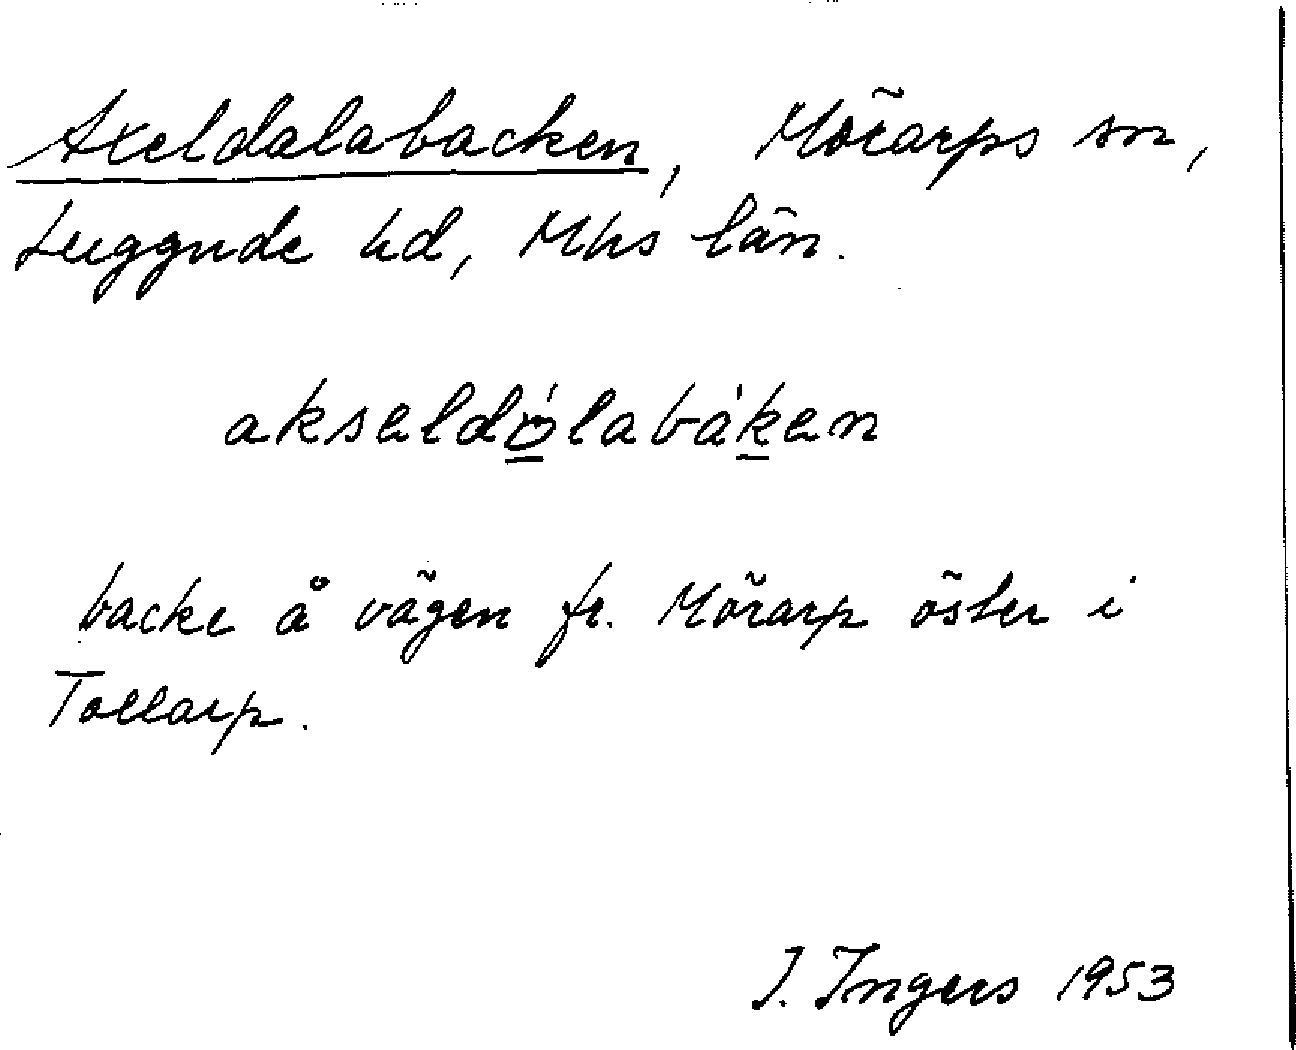 Axeldalabacken, Mörarps sn,
Luggude hd, Mhs län.
aksaldólabákan
backe å vägen fr. Mörarp öster i
Tollarp.
I. Ingers 1953